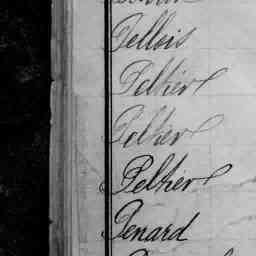 Pellois
Peltier
Peltier
Peltier
Penard